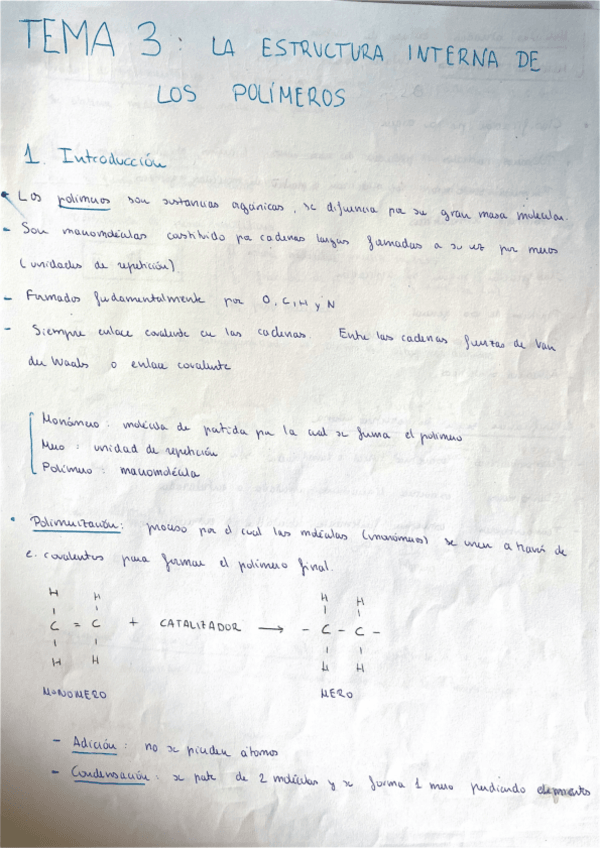 TEMA 3: LA ESTRUCTURA INTERNA DE
LOS POLÍMEROS
1. Introducción
• Los polímeros son sustancias orgánicas, se diferencia por su gran masa molecular.
- Son macromoléculas constituido por cadenas largas formadas a su vez por meros
(unidades de repetición)
- Formados fundamentalmente por O, C, H y N
- Siempre enlace covalente en las cadenas. Entre las cadenas fuerzas de Van
der Waals o enlace covalente
Monómero: molécula de partida por la cual se forma el polímero
Mero: unidad de repetición
Polímero: macromolécula
• Polimerización: proceso por el cual las moléculas (monómeros) se unen a través de
e. covalentes para formar el polímero final.
H H H H
C = C + CATALIZADOR → - C - C -
H H H H
MONOMERO MERO
- Adición: no se pierden átomos
- Condensación: se parte de 2 moléculas y se forma 1 mero perdiendo elementos